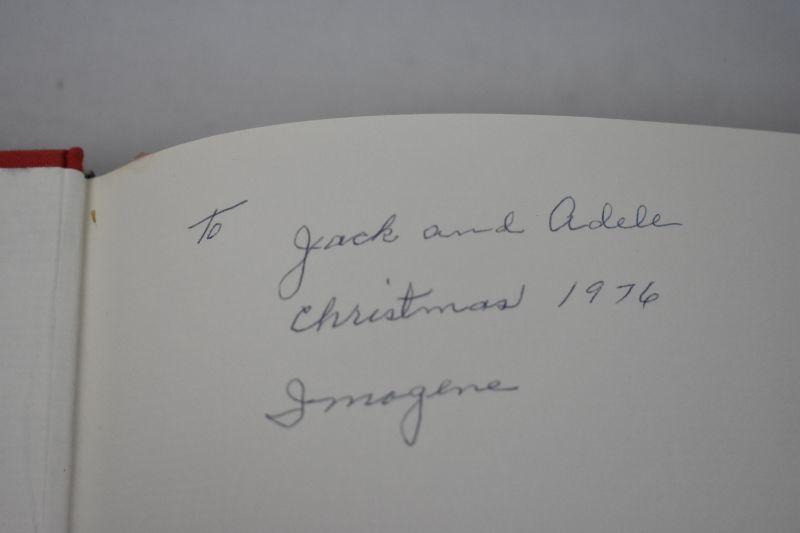 To Jack and Adele
Christmas 1976
Imogene